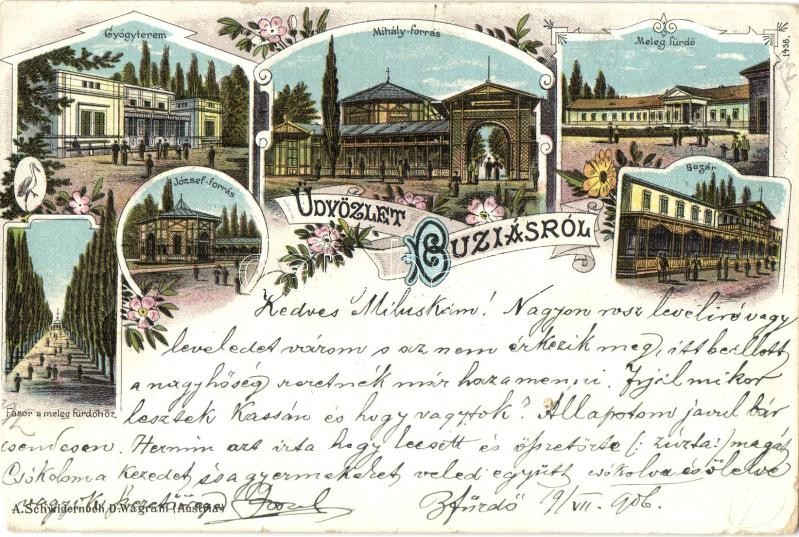 Gyógyterem
Mihály-forrás
Meleg fürdő
1438.
József-forrás
Bazár
ÜDVÖZLET BUZIÁSRÓL
Fasor a meleg fürdőhöz
Kedves Miluskám! Nagyon rosz levelíró vagy
leveledet várom s az nem érkezik meg, itt beállott
a nagy hőség szeretnék már hazamenni. Irjál mikor
lesztek Kassán és hogy vagytok? Állapotom javul bár
csendesen. Hermin azt irta hogy leesett és öszetörte (: zúzta :) magát
Csókolom a kezedet és a gyermekeket veled együtt csókolva és ölelve
Bfürdő 19/VII. 906.
A. Schwidernoch D.-Wagram (Austria)